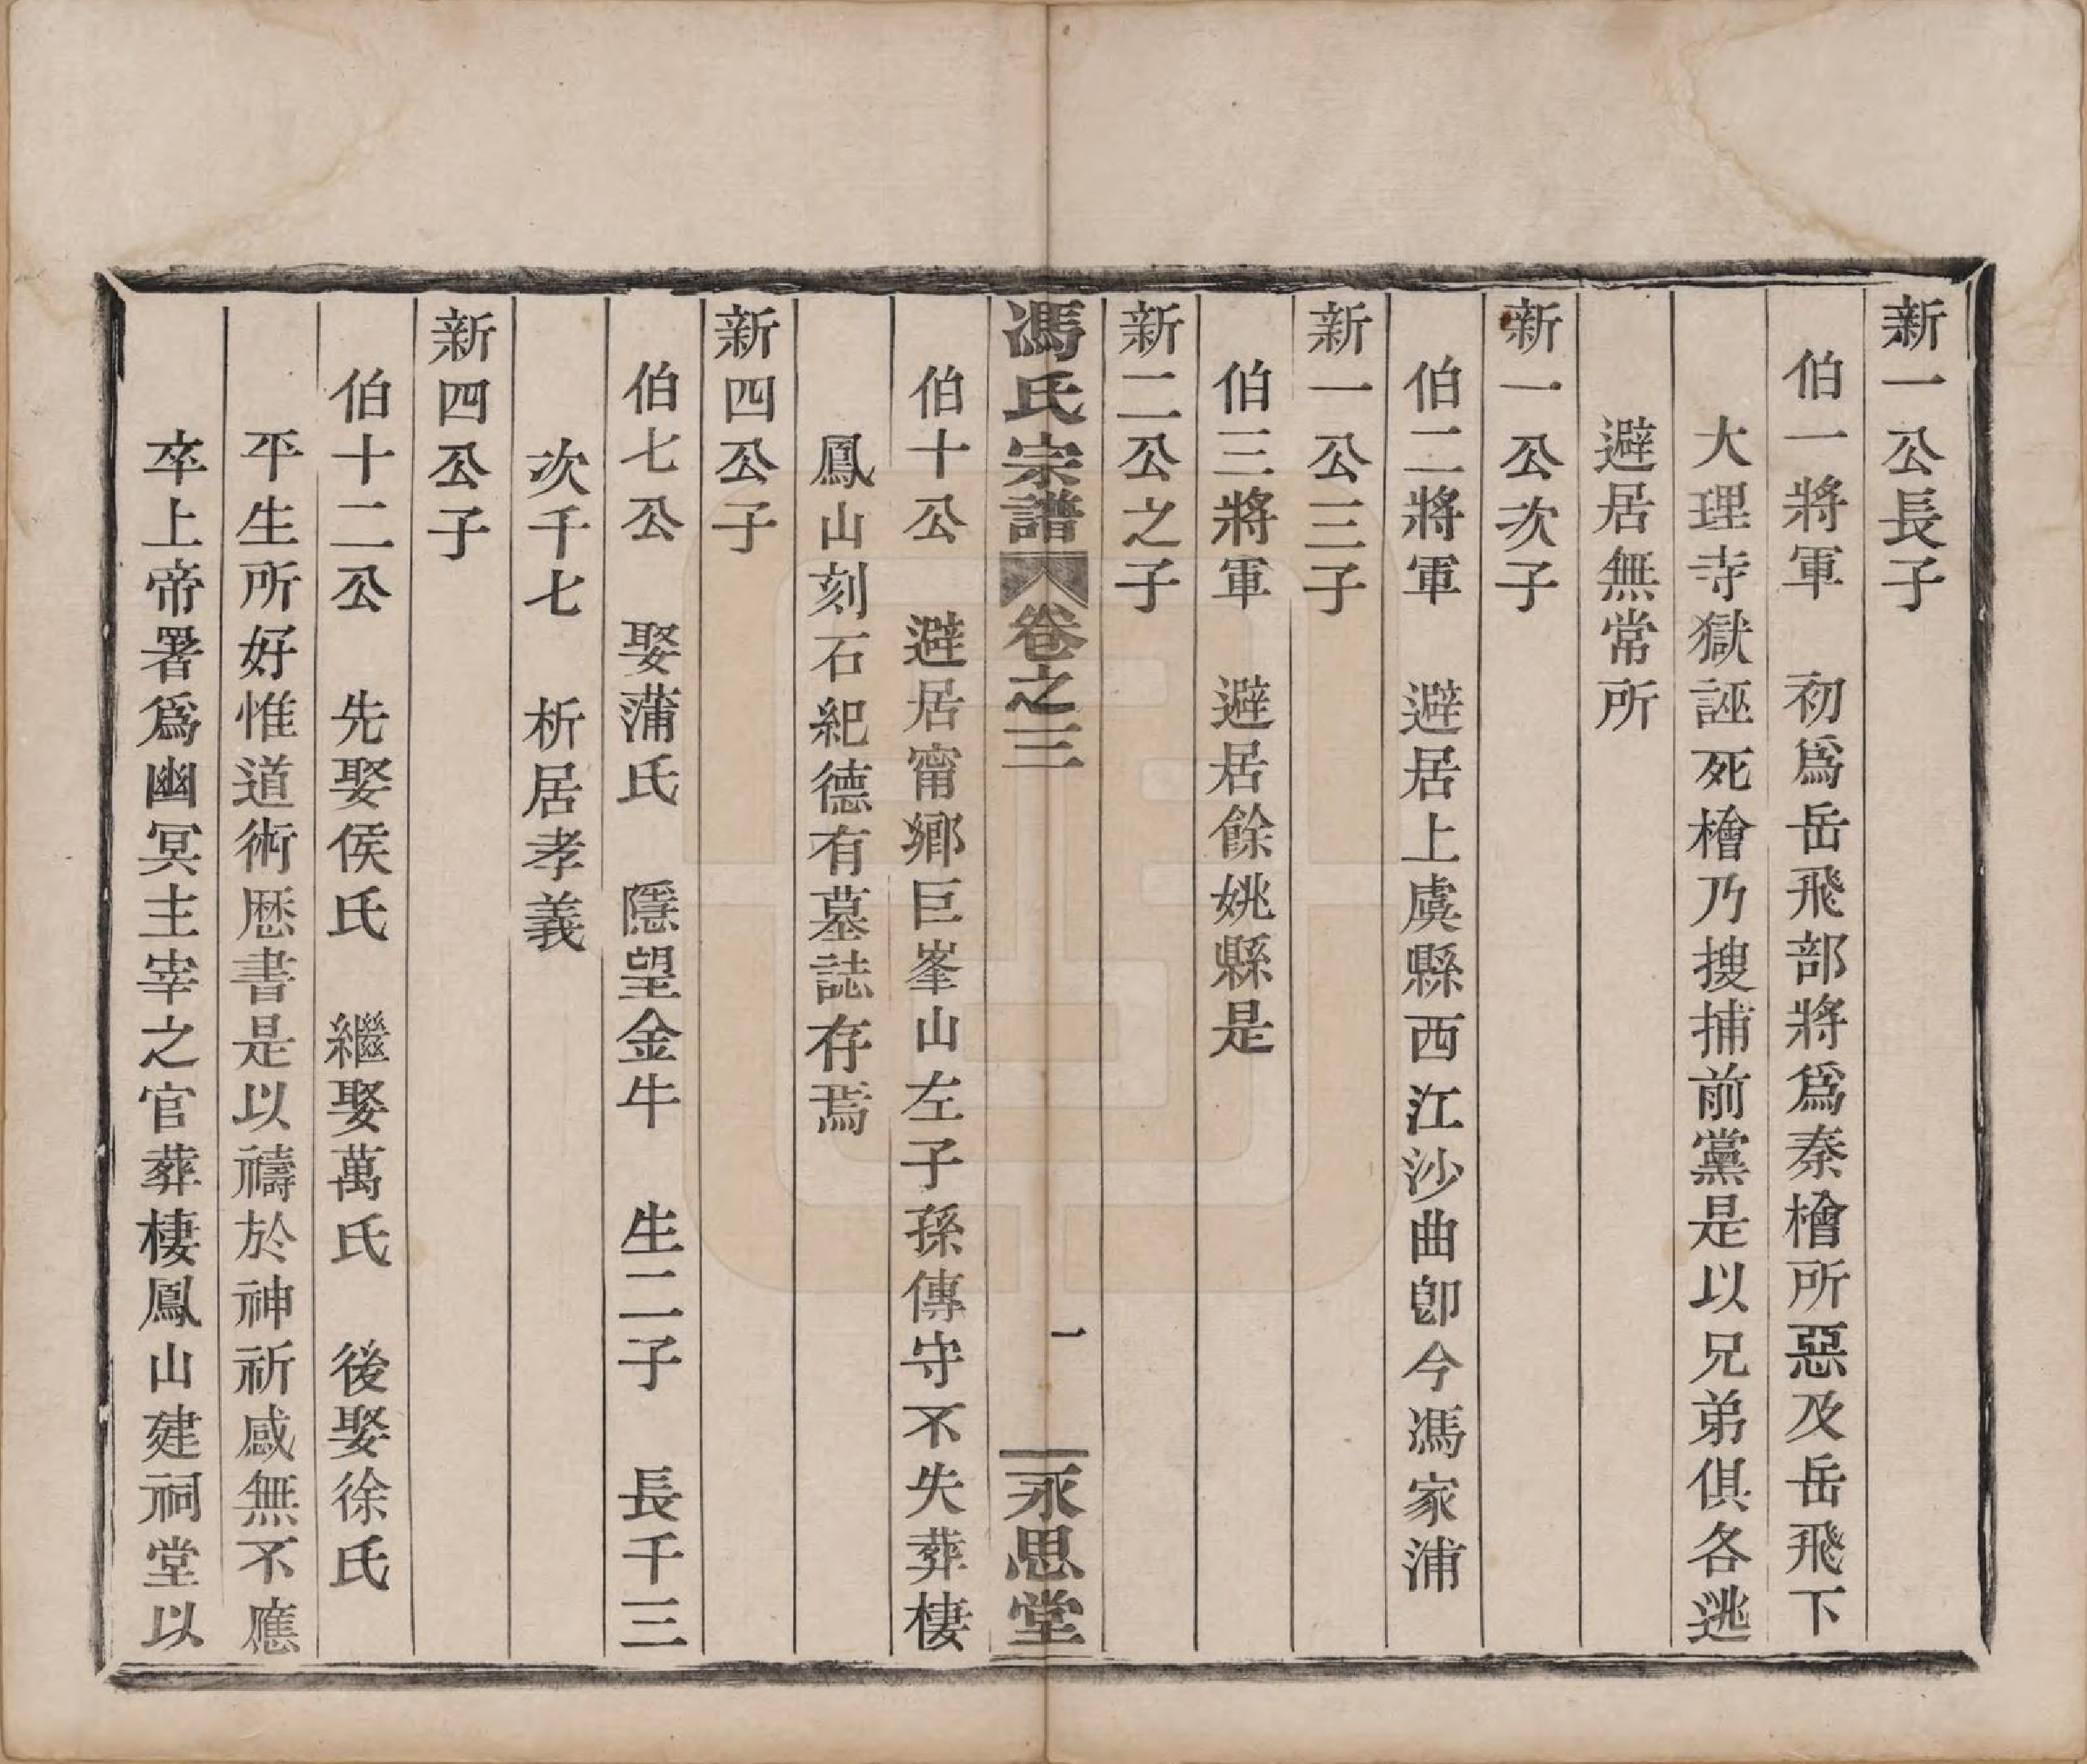 新一公長子
伯一將軍　初爲岳飛部將爲秦檜所惡及岳飛下
大理寺獄誣死檜乃搜捕前黨是以兄弟俱各逃
避居無常所
新一公次子
伯二將軍　避居上虞縣西江沙曲卽今馮家浦
新一公三子
伯三將軍　避居餘姚縣是
新二公之子
馮氏宗譜　卷之三　一　永思堂
伯十公　避居甯鄉巨峯山左子孫傳守不失葬棲
鳳山刻石紀德有墓誌存焉
新四公子
伯七公　娶蒲氏　隱望金牛　生二子　長千三
次千七　析居孝義
新四公子
伯十二公　先娶侯氏　繼娶萬氏　後娶徐氏
平生所好惟道術厯書是以禱於神祈感無不應
卒上帝署爲幽冥主宰之官葬棲鳳山建祠堂以